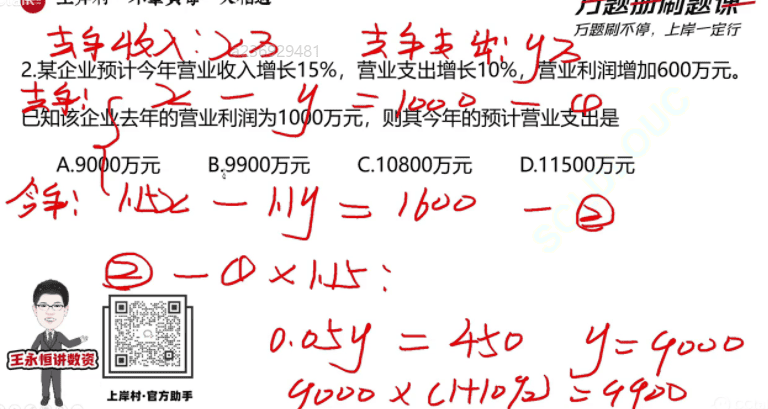 万题册刷题课
万题刷不停，上岸一定行
去年收入：x 去年支出：y
2.某企业预计今年营业收入增长15%，营业支出增长10%，营业利润增加600万元。
去年：x - y = 1000 - ①
已知该企业去年的营业利润为1000万元，则其今年的预计营业支出是
A.9000万元 B.9900万元 C.10800万元 D.11500万元
今年：1.15x - 1.1y = 1600 - ②
② - ① × 1.15：
0.05y = 450 y = 9000
9000 × (1+10%) = 9900
王永恒讲数资
上岸村·官方助手